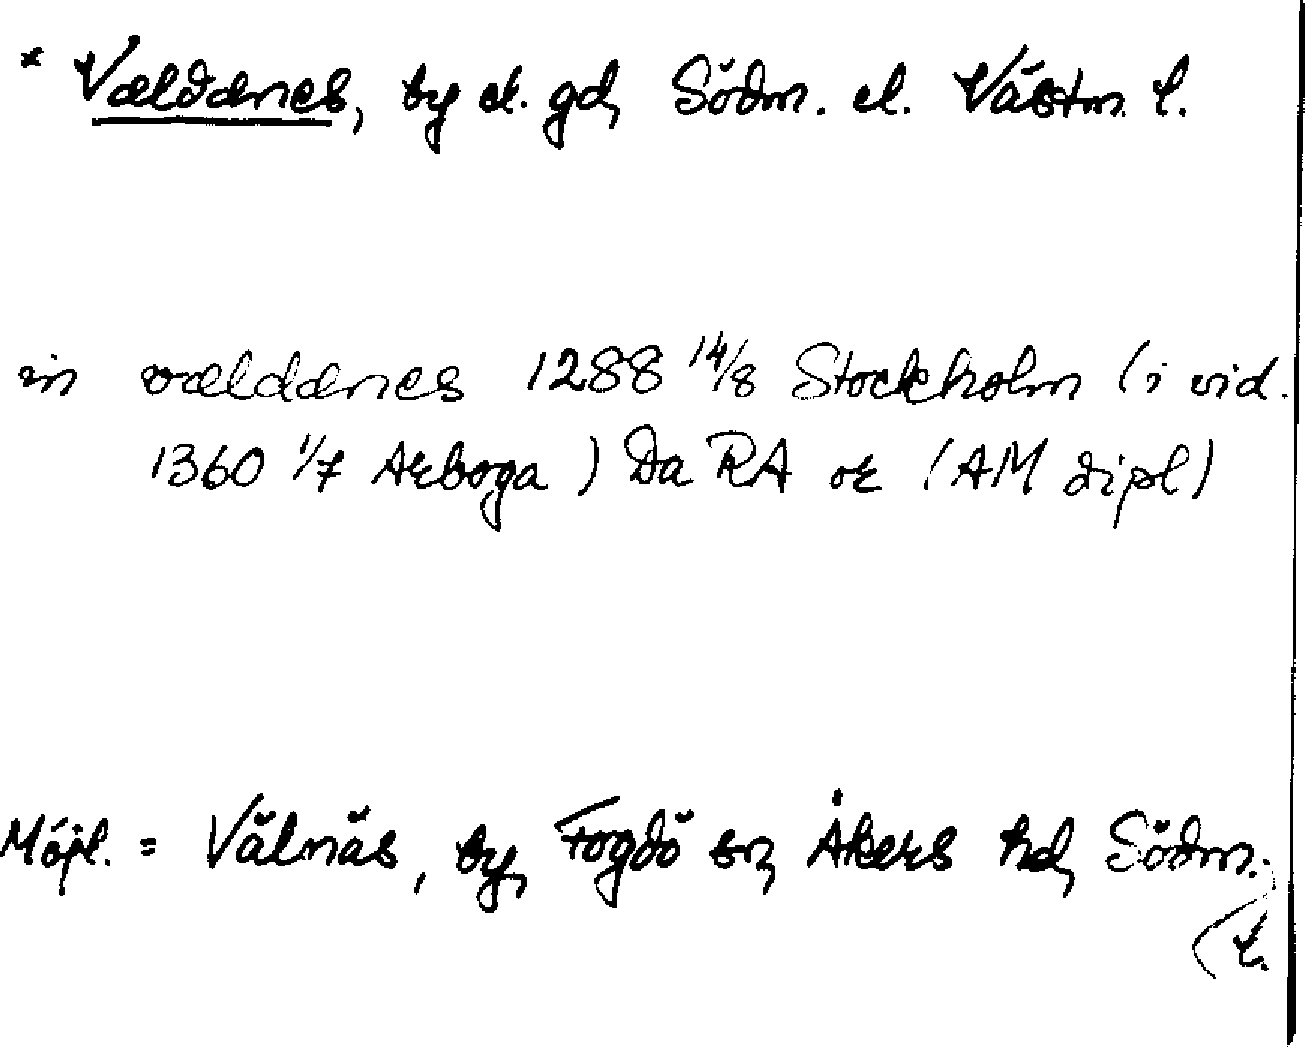 * Vældænes, by el. gd, Södm. el. Västm. l.
in vælddænes 1288 14/8 Stockholm (i vid.
1360 1/7 Arboga) Da RA or (AM dipl)
Möjl. = Välnäs, by, Fogdö sn, Åkers hd, Södm.
(l.